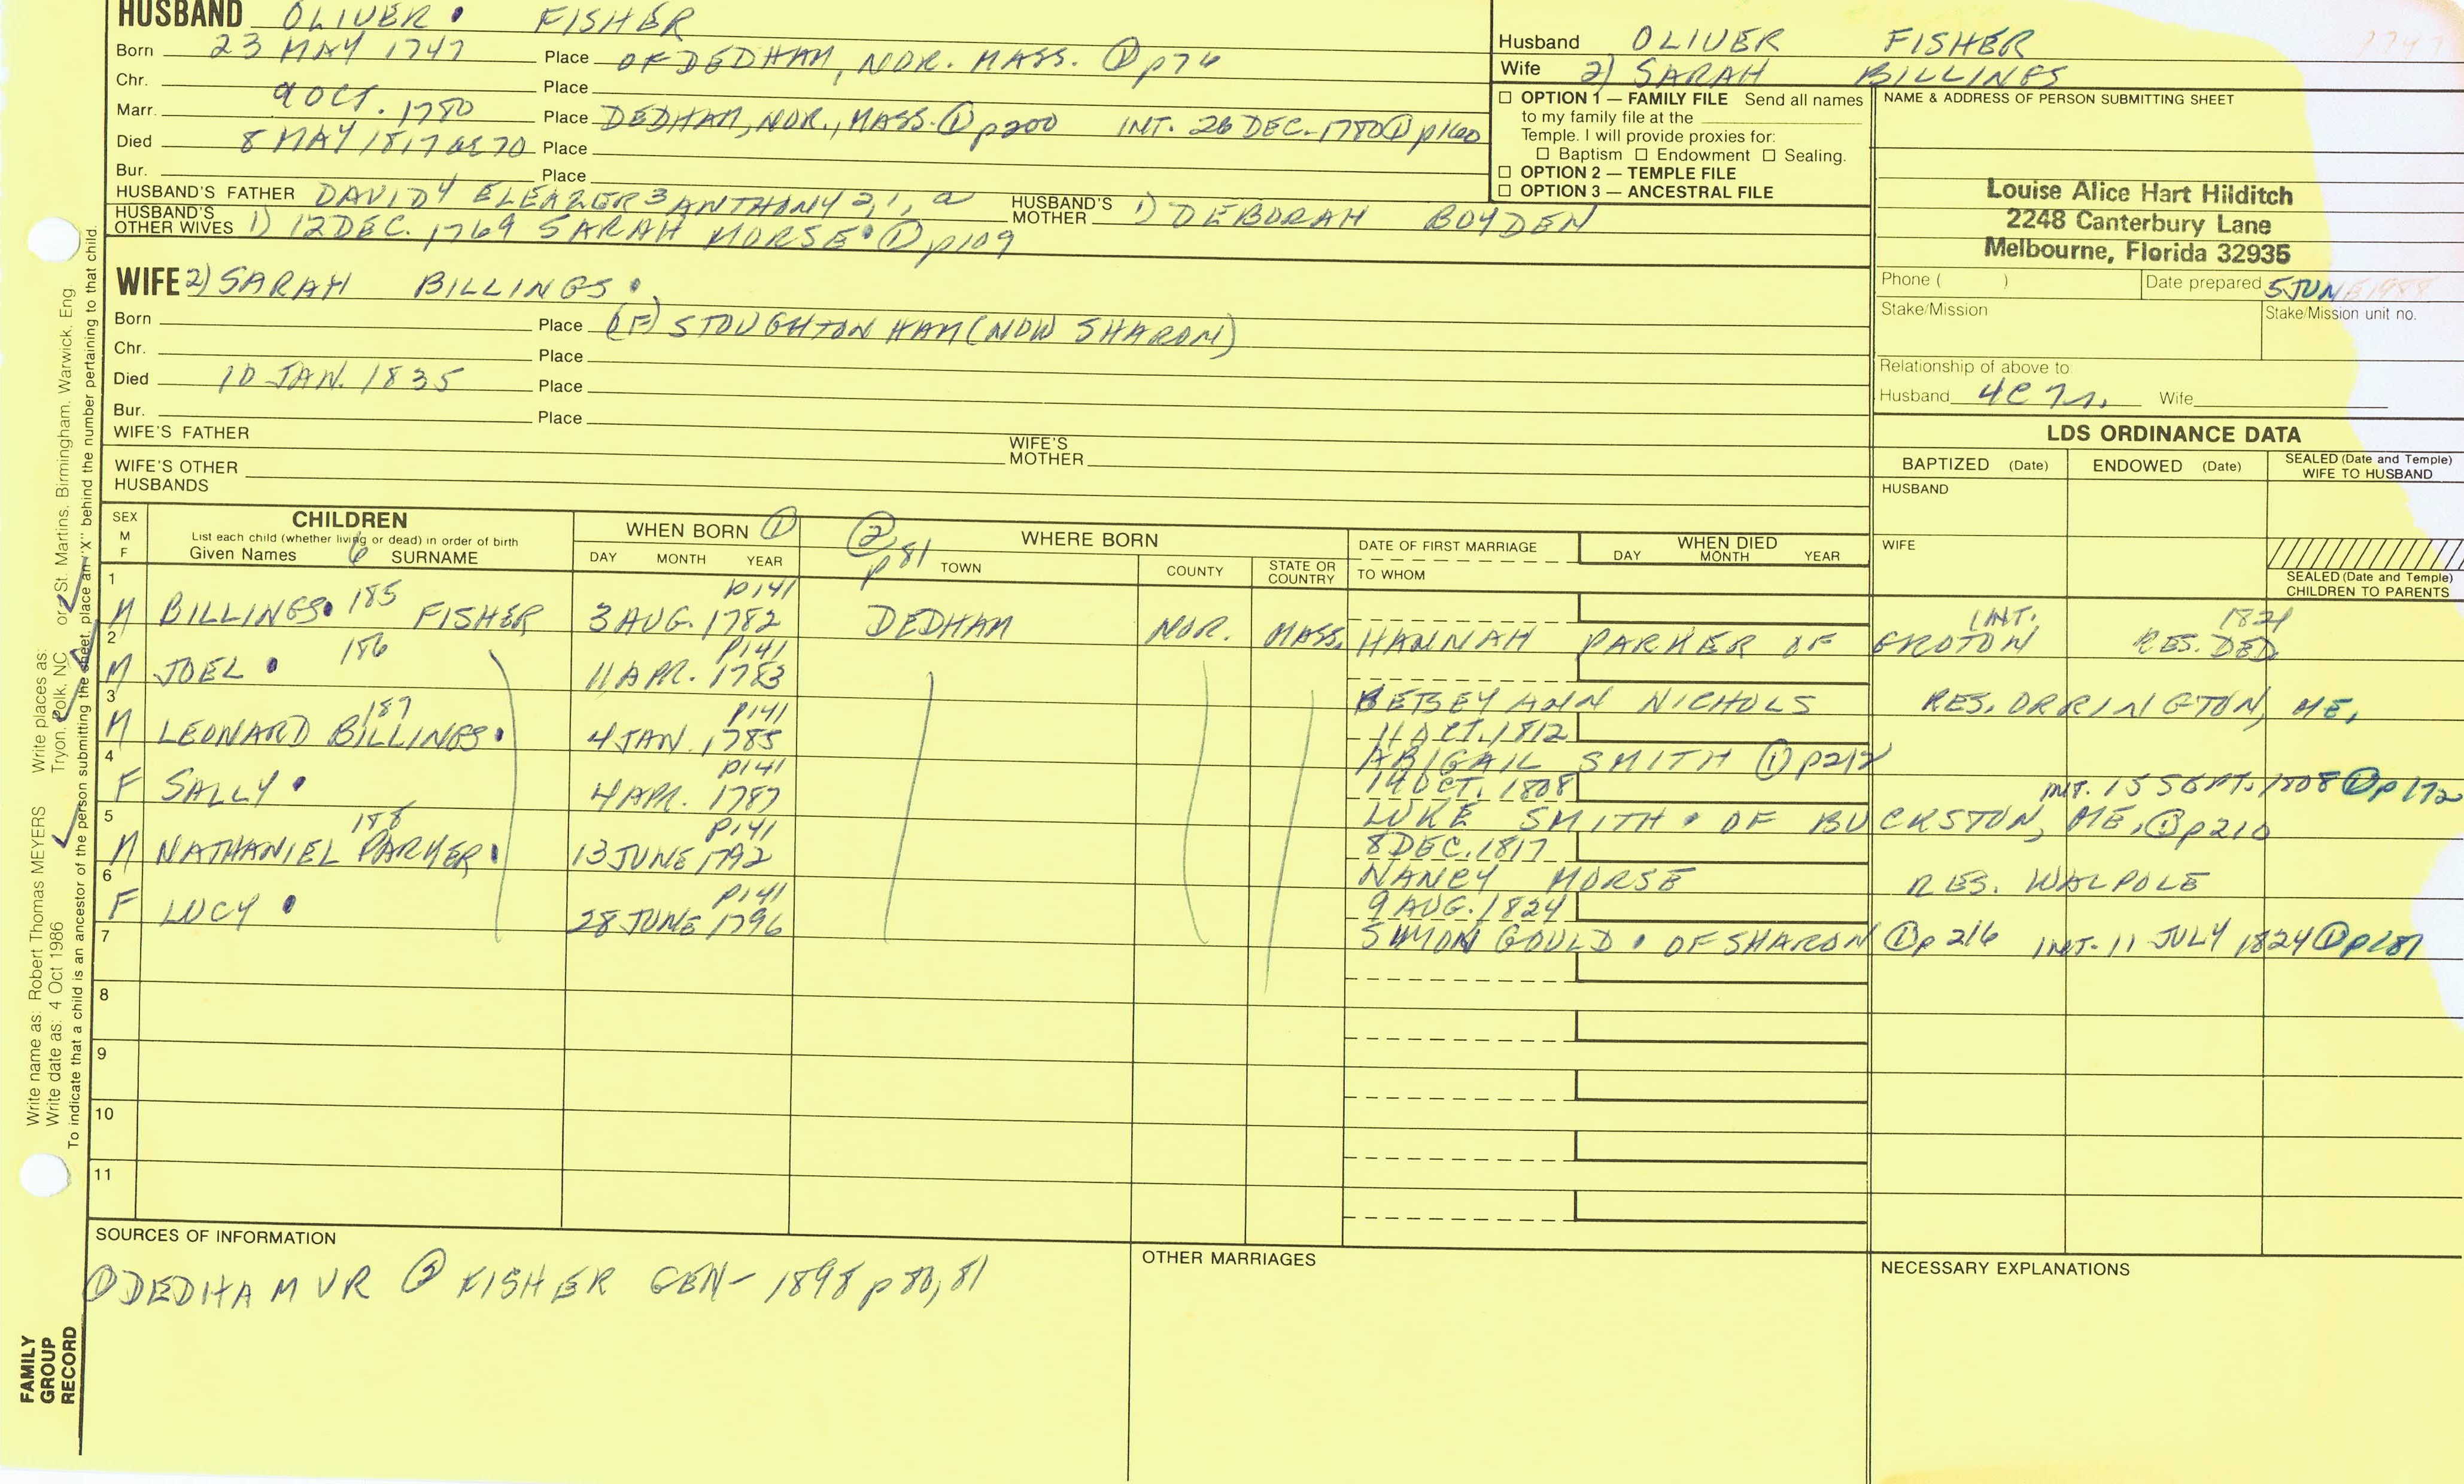 HUSBAND OLIVER • FISHER
Born 23 MAY 1747 Place OF DEDHAM, NOR. MASS. ① p76
Chr. Place
Marr. 9 OCT. 1780 Place DEDHAM, NOR., MASS. ① p200 INT. 26 DEC. 1780 ① p160
Died 8 MAY 1817 ae 70 Place
Bur. Place
HUSBAND'S FATHER DAVID 4 ELEAZER 3 ANTHONY 2, 1, a HUSBAND'S MOTHER 1) DEBORAH BOYDEN
HUSBAND'S OTHER WIVES 1) 12 DEC. 1769 SARAH MORSE • ① p109
WIFE 2) SARAH BILLINGS •
Born Place (OF) STOUGHTONHAM (NOW SHARON)
Chr. Place
Died 10 JAN. 1835 Place
Bur. Place
WIFE'S FATHER WIFE'S MOTHER
WIFE'S OTHER HUSBANDS
Husband OLIVER FISHER
Wife 2) SARAH BILLINGS
1747
☐ OPTION 1 — FAMILY FILE Send all names
to my family file at the
Temple. I will provide proxies for:
☐ Baptism ☐ Endowment ☐ Sealing.
☐ OPTION 2 — TEMPLE FILE
☐ OPTION 3 — ANCESTRAL FILE
NAME & ADDRESS OF PERSON SUBMITTING SHEET
Louise Alice Hart Hilditch
2248 Canterbury Lane
Melbourne, Florida 32935
Phone ( ) Date prepared 5 JUNE 1988
Stake/Mission Stake/Mission unit no.
Relationship of above to
Husband 4C7r. Wife
LDS ORDINANCE DATA
BAPTIZED (Date) ENDOWED (Date) SEALED (Date and Temple) WIFE TO HUSBAND
HUSBAND
WIFE
SEALED (Date and Temple) CHILDREN TO PARENTS
SEX M F
CHILDREN
List each child (whether living or dead) in order of birth
Given Names 6 SURNAME
WHEN BORN ①
DAY MONTH YEAR
② p81 WHERE BORN
TOWN COUNTY STATE OR COUNTRY
DATE OF FIRST MARRIAGE
TO WHOM
WHEN DIED
DAY MONTH YEAR
1 M BILLINGS • 185 FISHER p141 3 AUG. 1782 DEDHAM NOR. MASS. HANNAH PARKER OF GROTON INT. 1821 RES. DED
2 M JOEL • 186 p141 11 APR. 1783 BETSEY ANN NICHOLS RES. ORRINGTON, ME.
3 M LEONARD BILLINGS • 187 p141 4 JAN. 1785 11 OCT. 1812 ABIGAIL SMITH ① p212
4 F SALLY • p141 4 APR. 1787 14 OCT. 1808 LUKE SMITH • OF BUCKSTON, ME. ① p210 INT. 15 SEPT. 1808 ① p172
5 M NATHANIEL PARKER • 188 p141 13 JUNE 1792 8 DEC. 1817 NANCY MORSE RES. WALPOLE
6 F LUCY • p141 28 JUNE 1796 9 AUG. 1824 SIMON GOULD • OF SHARON ① p216 INT. 11 JULY 1824 ① p181
7
8
9
10
11
SOURCES OF INFORMATION
① DEDHAM VR ② FISHER GEN- 1898 p 80, 81
OTHER MARRIAGES
NECESSARY EXPLANATIONS
Write name as: Robert Thomas MEYERS Write places as: Tryon, Polk, NC or: St. Martins, Birmingham, Warwick, Eng
Write date as: 4 Oct 1986
To indicate that a child is an ancestor of the person submitting the sheet, place an "X" behind the number pertaining to that child.
FAMILY
GROUP
RECORD